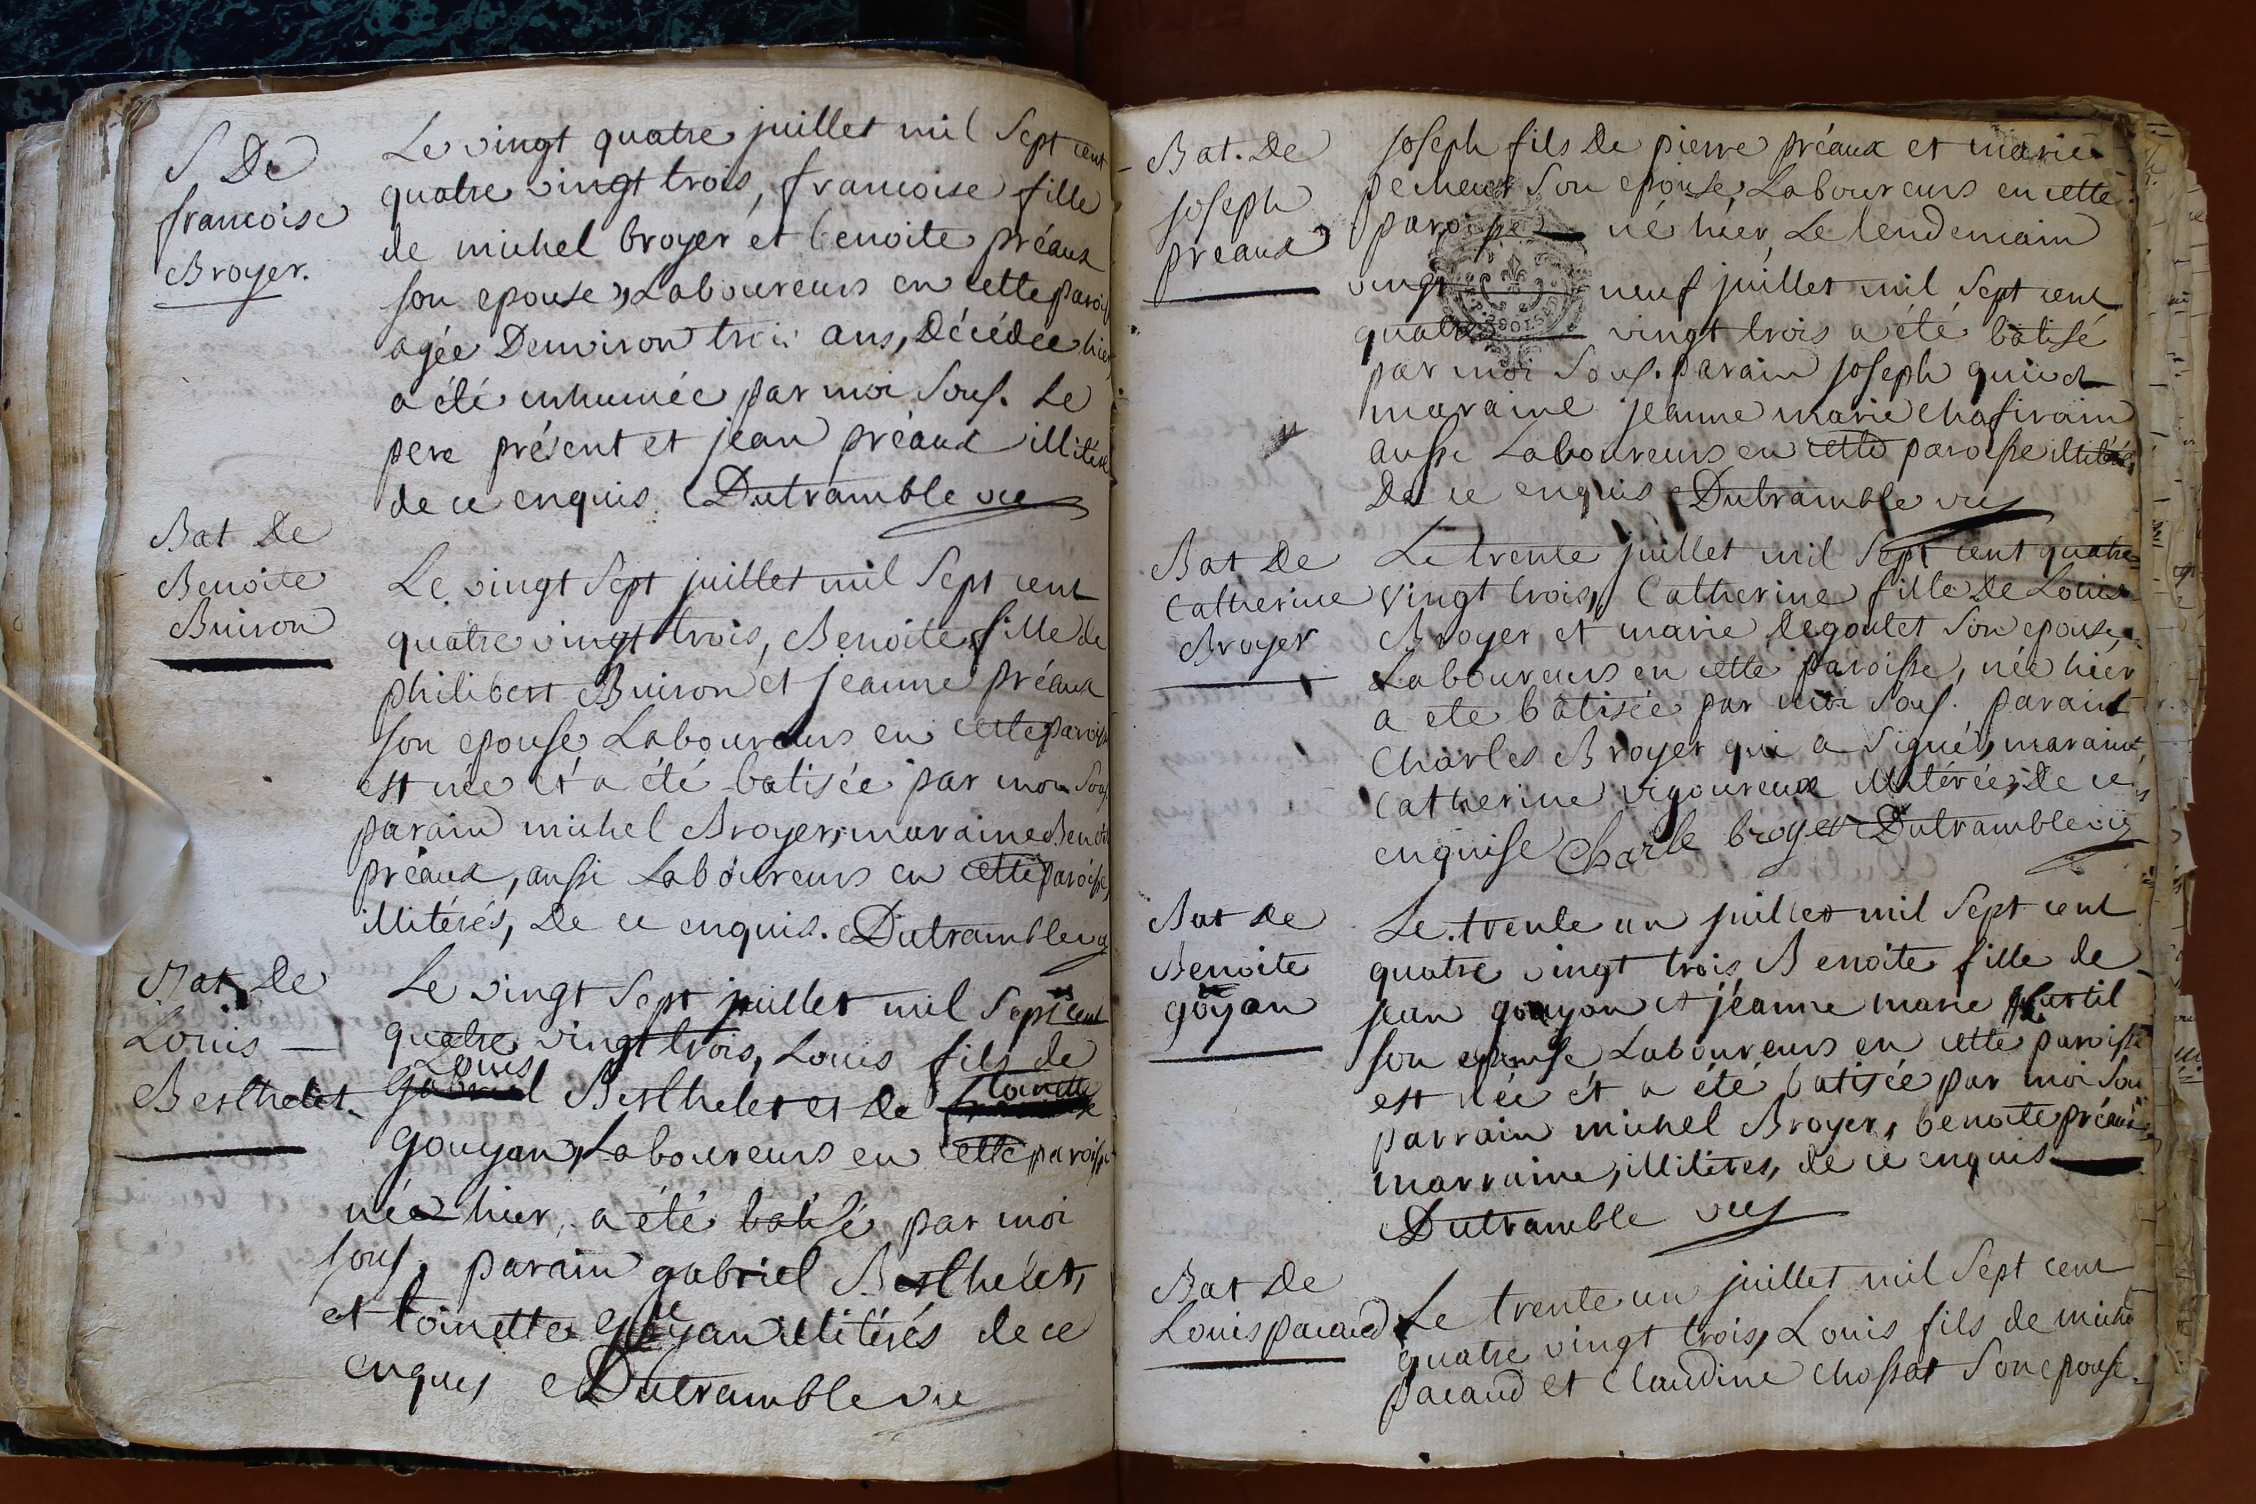 S De
francoise
Broyer.
Le vingt quatre juillet mil sept cent
quatre vingt trois, francoise fille
de michel broyer et benoite préaux
son epouse, Laboureurs en cette parois
agée Denviron trois ans, Décédée hier
a été inhumée par moi sous. Le
pere présent et jean préaux illitéré
de ce enquis. Dutramble vic
Bat De
Benoite
Buiron
Le vingt sept juillet mil sept cent
quatre vingt trois, Benoite fille de
philibert Buiron et jeanne préaux
son epouse Laboureurs en cette paroisse
est née et a été batisée par moi sous.
parain michel Broyer, maraine Benoite
préaux, aussi Laboureurs en cette paroisse,
illitérés, De ce enquis. Dutramble vic
Bat De
Louis
Berthelet.
Le vingt sept juillet mil sept cent
quatre vingt trois, Louis fils de
Louis
Gabriel Berthelet et De toinette
gouyan, Laboureurs en cette paroisse
née hier, a été batisé par moi
sous. parain gabriel Berthelet,
et toinette gouyan illitérés de ce
enquis Dutramble vic
Bat. De
joseph
préaux
joseph fils De pierre préaux et marie
son epouse, Laboureurs en cette
paroisse né hier, Le lendemain
vingt neuf juillet mil sept cent
quatre vingt trois a été batisé
par moi sous. parain joseph
maraine jeanne marie
aussi Laboureurs en cette paroisse illitérés
De ce enquis Dutramble vic
Bat De
Catherine
Broyer
Le trente juillet mil sept cent quatre
vingt trois, Catherine fille De Louis
Broyer et marie Degoutet son epouse,
Laboureurs en cette paroisse, née hier
a ete batisée par moi sous. parain
Charles Broyer qui a signé, maraine
Catherine vigoureux illitérée, De ce
enquise Charle broyer Dutramble vic
Bat De
Benoite
goyan
Le trente un juillet mil sept cent
quatre vingt trois Benoite fille de
jean gouyon et jéanne marie
son epouse Laboureurs en cette paroisse
est née et a été batisée par moi sou
parrain michel Broyer, benoite préaux
marraine, illitéres, de ce enquis
Dutramble vic
Bat De
Louis pacaud
Le trente un juillet mil sept cent
quatre vingt trois, Louis fils de michel
pacaud et Claudine Chossat son epouse